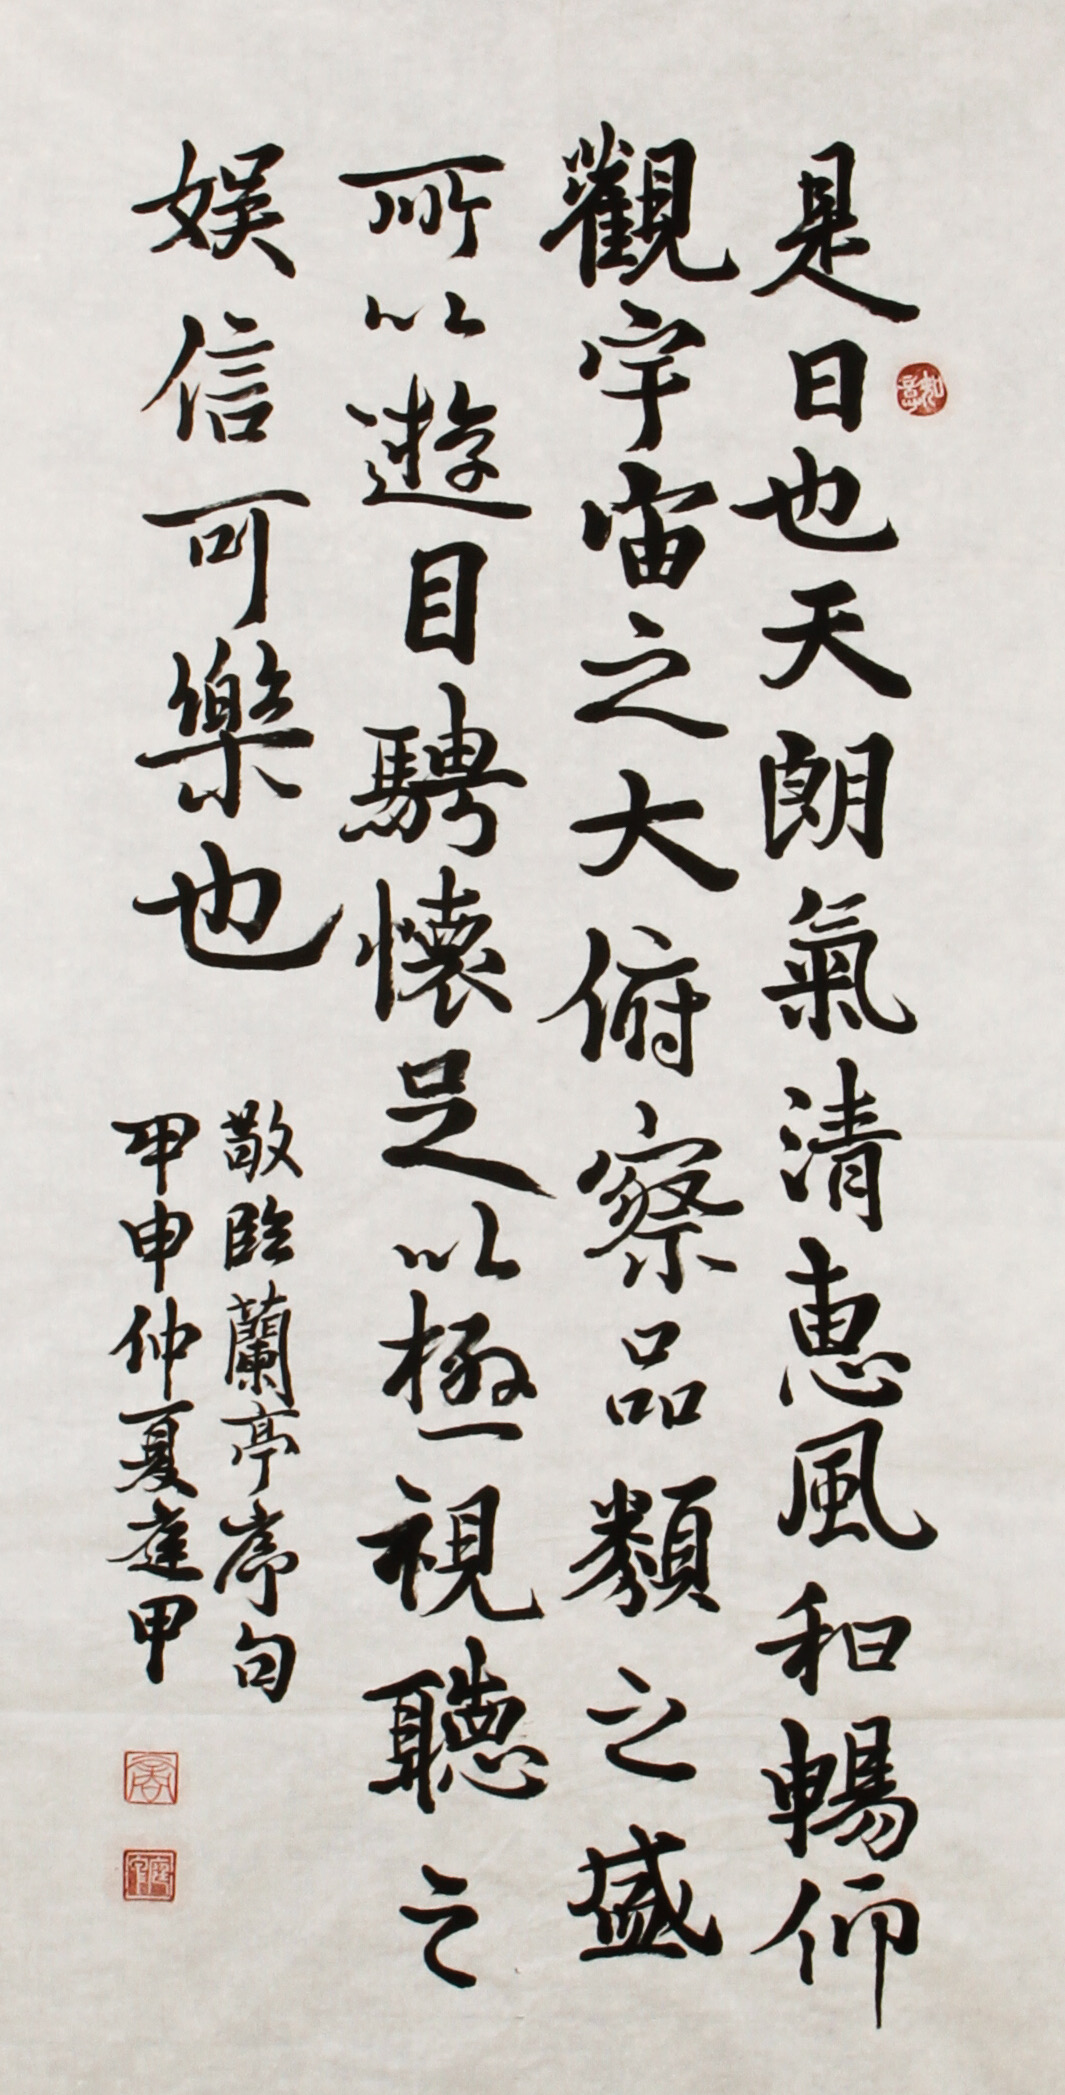 是日也天朗氣清惠風和暢仰
觀宇宙之大俯察品類之盛
所以遊目騁懷足以極視聽之
娛信可樂也
敬臨蘭亭序句
甲申仲夏庭甲